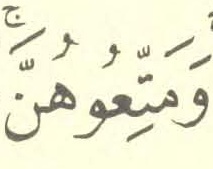 وَمَتِّعُوهُنَّ ۚ